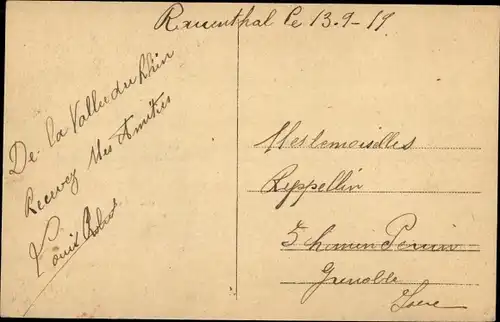 Rauenthal le 13.9-19
De la Vallee du Rhin
Recevez Mes Amities
Louis
Mesdemoiselles
Reppellin
5 chemin
Grenoble
Isere